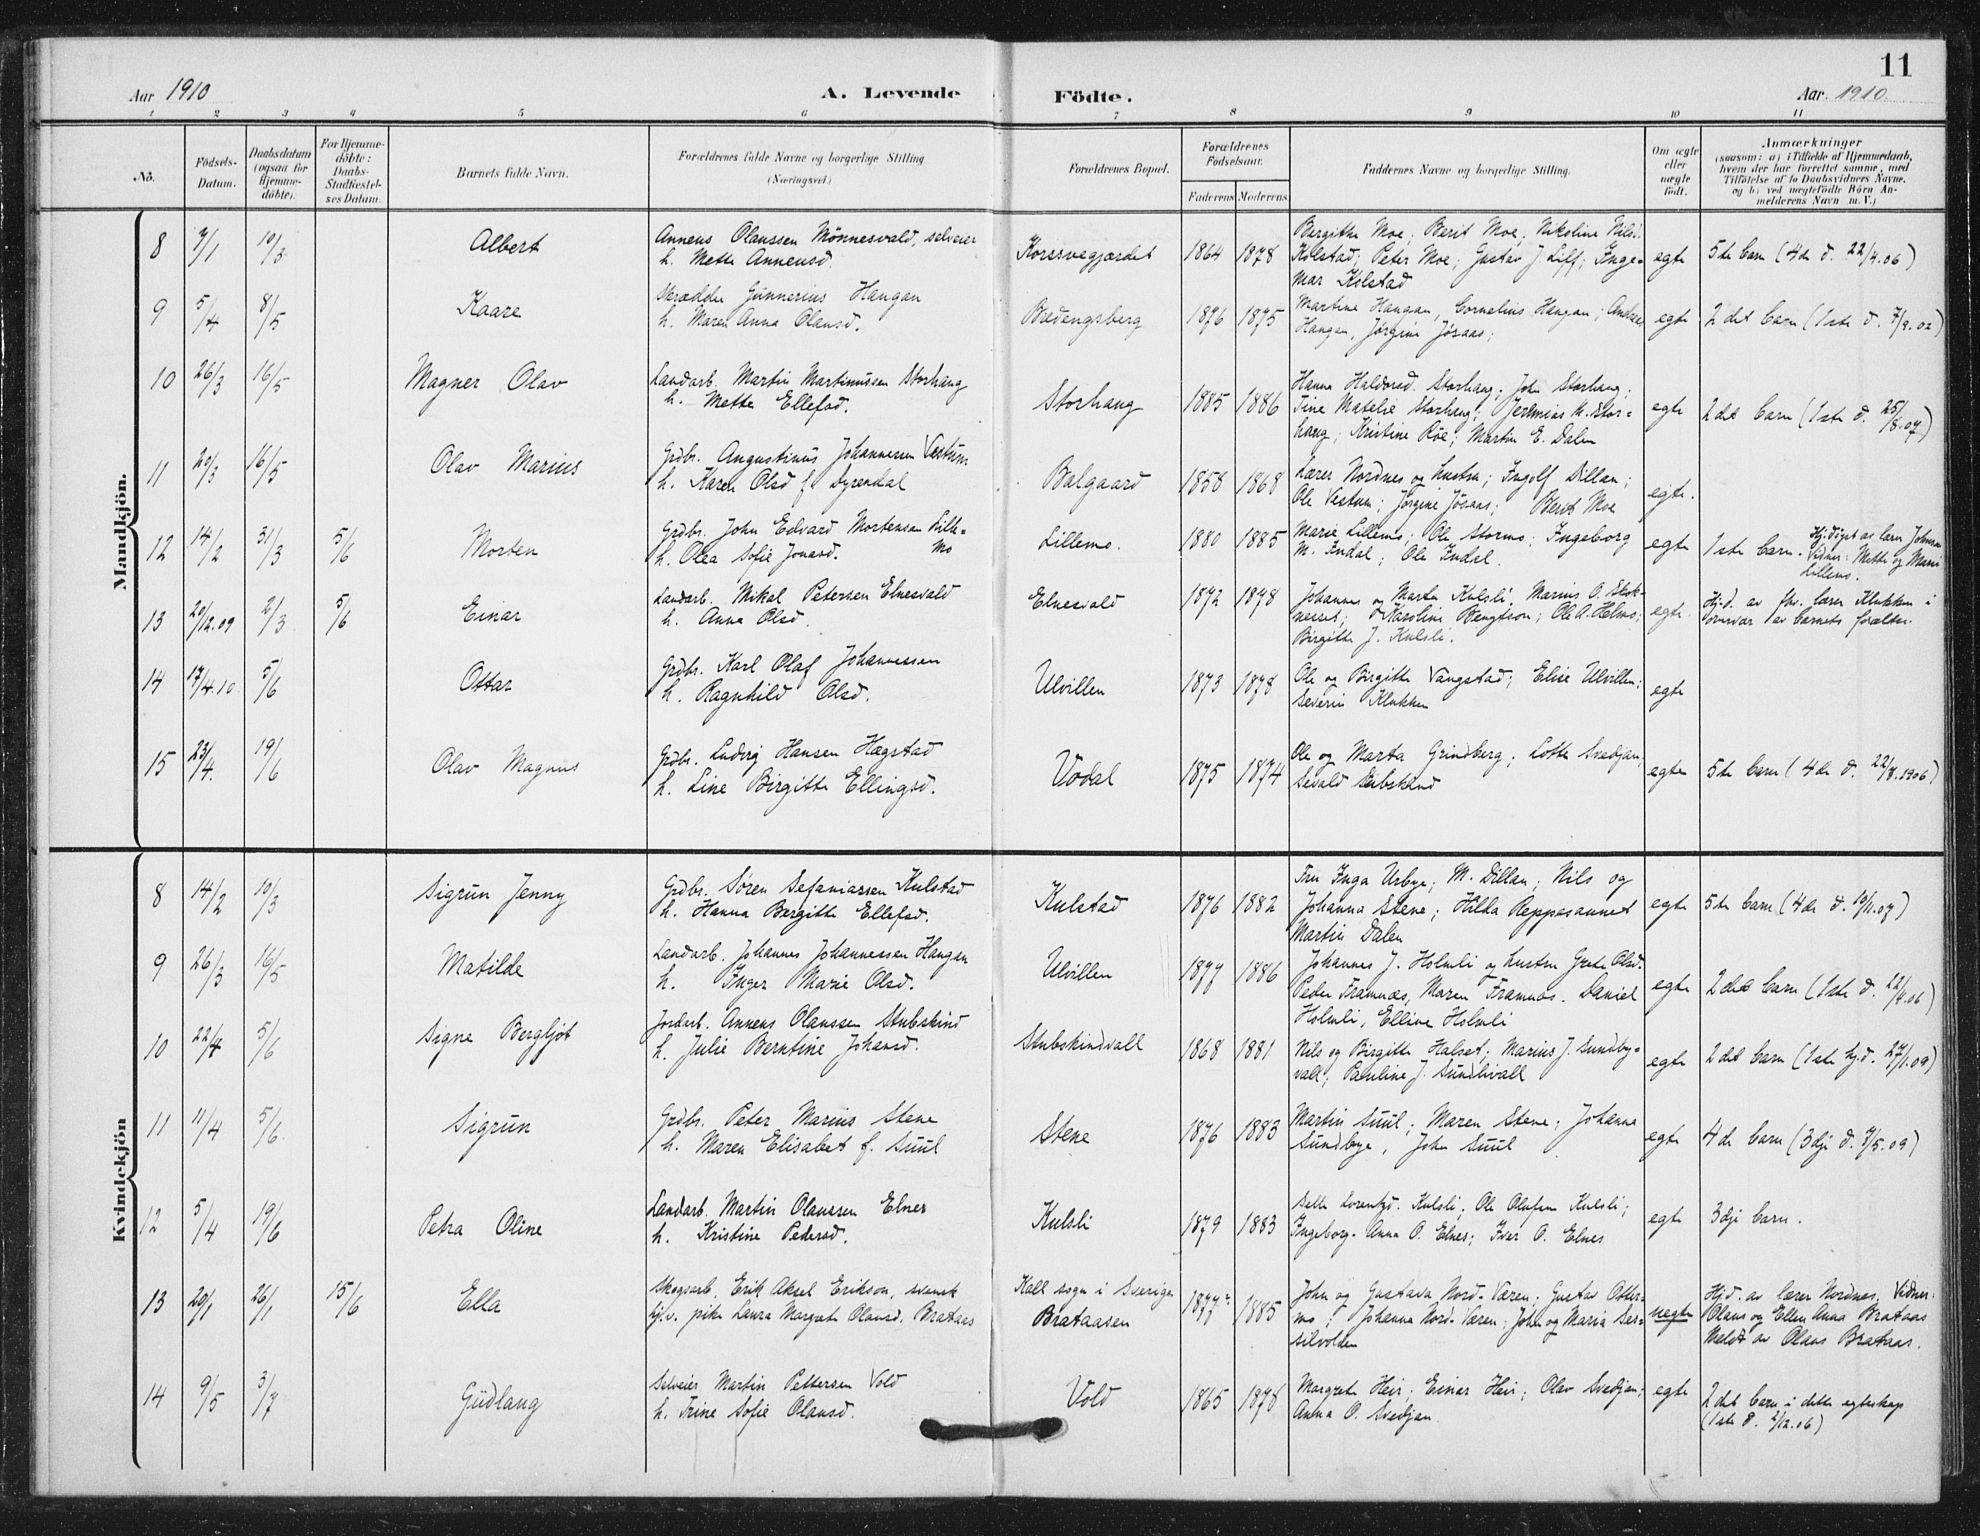 11
Aar 1910 A. Levende Födte. Aar 1910.
1 2 3 4 5 6 7 8 9 10 11
No. Födsels-Datum. Daabsdatum (ogsaa for Hjemme-döbte). For Hjemme-döbte: Daabs-Stadfæstel-ses Datum. Barnets fulde Navn. Forældrenes fulde Navne og borgerlige Stilling (Næringsvei.) Forældrenes Bopæl. Forældrenes Födselsaar. Faderens Moderens Faddernes Navne og borgerlige Stilling. Om ægte eller uægte födt. Anmærkninger (saasom: a) i Tilfælde af Hjemmedaab, hvem der har forrettet samme, med Tilföielse af to Daabsvidners Navne, og b) ved uægtefödte Börn An-melderens Navn m. V.)
Mandkjön.
8 7/1 10/3 Albert Annens Olaussen Mönnesvald, selveier
h. Mette Annensd. Korssvegjærdet 1864 1878 Bergitha Moe; Berit Moe; Nikoline Nils.
Kolstad; Peter Moe; Gustav J. Liff; Inge-
mar Kolstad egte 5te barn (4de d. 22/4.06)
9 5/4 8/5 Kaare Skrædder Gunnerius Haugan
h. Maren Anna Olausd. Brædengsberg 1876 1875 Martine Haugan, Cornelius Haugan; Andreas
Haugan, Jørgine Jøsaas; egte 2det barn (1ste d. 7/9.02)
10 26/3 16/5 Magner Olav Landarb. Martin Martinussen Storhaug
h. Mette Ellefsd. Storhaug 1885 1886 Hanna Haldorsd. Storhaug; John Storhaug;
Tine Matelie Storhaug; Jeremias K. Stor-
haug; Kristine Røe; Martin E. Dalen egte 2det barn (1ste d. 25/8.07)
11 20/3 16/5 Olav Marius Grdbr. Augustinus Johannessen Vestum
h. Karen Olsd f. Dyrendal Balgaard 1858 1868 Lærer Nordnes og hustru; Ingolf Dillan;
Ole Vestum; Jørgine Jøsaas; Berit Moe egte.
12 14/2 31/3 5/6 Morten Grdbr. John Edvard Mortensen Lille-
mo
h. Olea Sofie Jonasd. Lillemo. 1880 1885 Marie Lillemo; Ole Stormo; Ingeborg
M. Indal; Ole Indal. egte 1ste barn. Hj.døpt av lærer Johnsen
Vidner: Mette og Marie
Lillemo.
13 20/12.09 2/3 5/6 Einar Landarb. Mikal Petersen Elnesvald
h. Anna Olsd. Elnesvald 1872 1878 Johannes og Marta Kulsli; Marius O. Stok-
nesset; Karoline Bengtson; Ole A. Helmo;
Birgitte J. Kulsli. egte. Hj.d. av fhv. lærer Klukken i
overvær av barnets forældre.
14 17/4.10 5/6 Ottar Grdbr. Karl Olaf Johannessen
h. Ragnhild Olsd. Ulvillen 1873 1878 Ole og Birgitte Vangstad; Elise Ulvillen;
Severin Klukken egte
15 23/4. 19/6 Olav Magnus Grdbr. Ludvig Hansen Hægstad
h. Line Birgitte Ellingsd. Vodal 1875 1874 Ole og Marta Grindberg; Lotte Svedjan;
Sevald Stubskind egte 5te barn (4de d. 22/8.1906)
Kvindekjön
8 14/2 10/3 Sigrun Jenny Grdbr. Søren Sefaniassen Kulstad
h. Hanna Bergitte Ellefsd. Kulstad 1876 1882 Fru Inga Urbye; M. Dillan; Nils og
Johanna Stene; Hilda Reppesaunet
Martin Dalen egte 5te barn (4de d. 10/11.07)
9 26/3 16/5 Matilde Landarb. Johannes Johannessen Haugan
h. Inger Marie Olsd. Ulvillen 1877 1886 Johannes J. Holmli og hustru Grete Olsd.
Peder Framnæs, Maren Framnæs. Daniel
Holmli, Elline Holmli egte 2det barn (1ste d. 22/4.06)
10 22/4 5/6 Signe Bergljot Jordarb. Annens Olaussen Stubskind
h. Julie Berntine Johansd. Stubskindvall 1868 1881 Nils og Birgitte Halset; Marius J. Sundby-
vall; Pauline J. Sundbivall egte 2det barn (1ste hj.d. 27/1.09)
11 11/4 5/6 Sigrun Grdbr. Peter Marius Stene
h. Maren Elisabet f. Suul Stene 1876 1883 Martin Suul; Maren Stene; Johanna
Sundbye, John Suul egte 4de barn (3dje d. 7/5.09)
12 5/4 19/6 Petra Oline Landarb. Martin Olaussen Elnes
h. Kristine Petersd. Kulsli 1879 1883 Sella Lorentzd. Kulsli; Ole Olufsen Kulsli;
Ingeborg-Anna O. Elnes; Iver O. Elnes egte 3dje barn.
13 20/1 26/1 15/6 Ella Skogsarb. Erik Aksel Erikson, svensk
tj.v. pike Laura Margrete Olausd. Brataas Kall sogn i Sverige
Brataasen 1877 1885 John og Gustava Nord-Væren; Gustav Otter-
mo; Johanna Nord-Væren; John og Maria Ses-
silvolden uegte Hj.d. av lærer Nordnes. Vidner:
Olaus og Ellen Anna Brataas
Meldt av Olaus Brataas.
14 9/5 3/7 Gudlaug Selveier Martin Pettersen Vold
h. Trine Sofie Olausd. Vold 1865 1878 Margrete Heir; Einar Heir; Olav Svedjan;
Anna O. Svedjan. egte 2det barn i dette egteskap
(1ste d. 2/12.06)